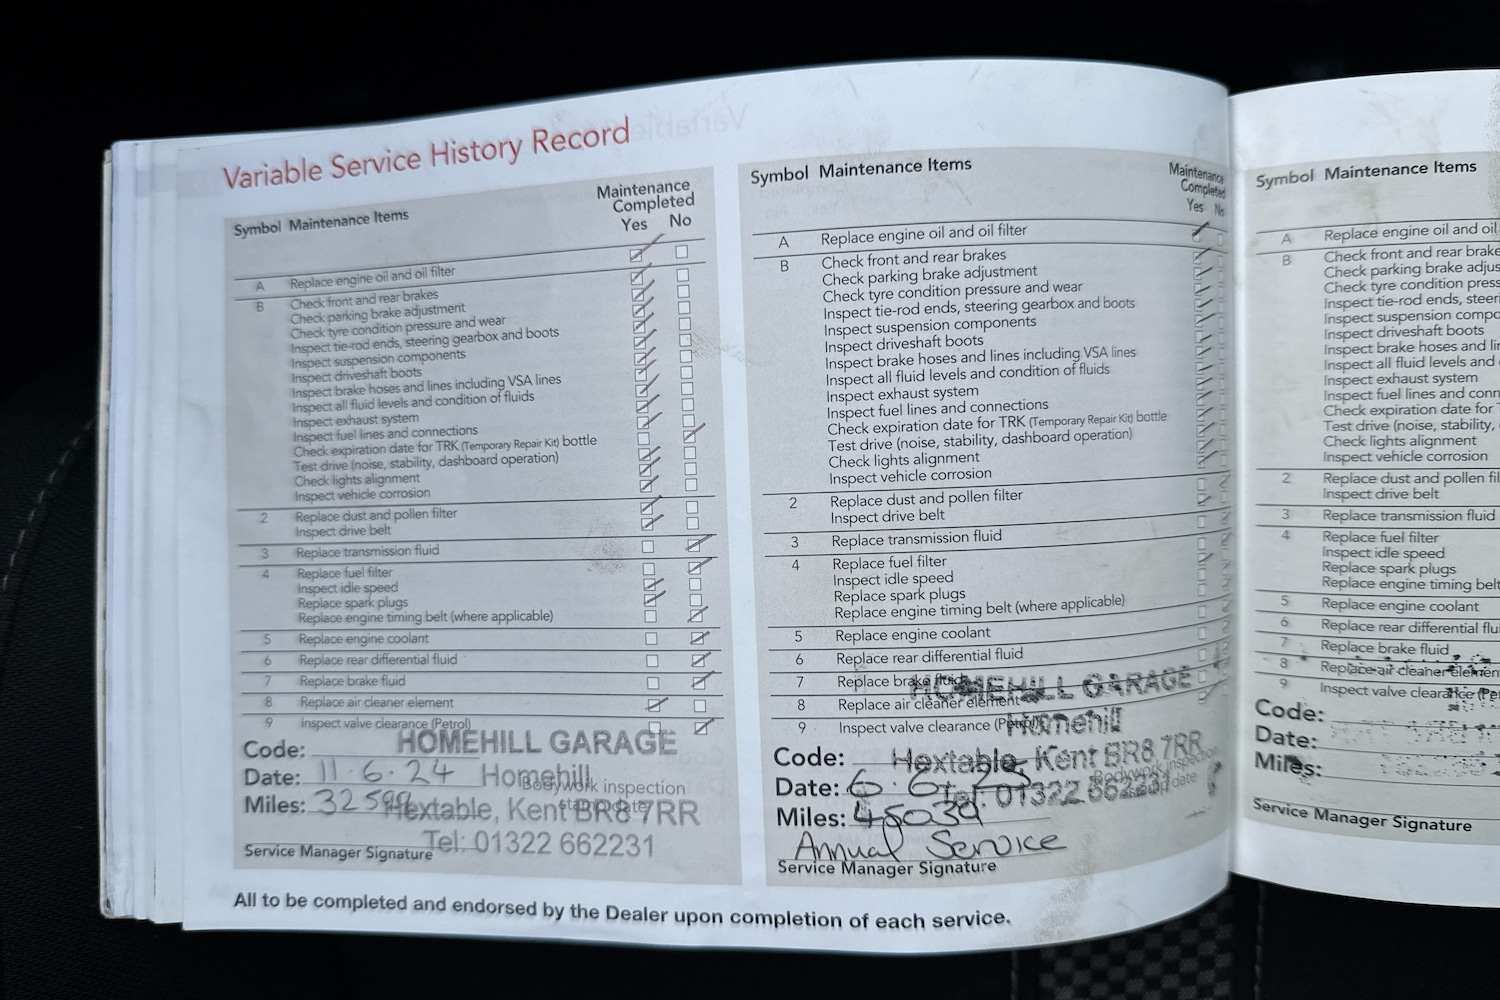 Variable Service History Record
Symbol Maintenance Items
Maintenance
Completed
Yes No
A Replace engine oil and oil filter
B Check front and rear brakes
Check parking brake adjustment
Check tyre condition pressure and wear
Inspect tie-rod ends, steering gearbox and boots
Inspect suspension components
Inspect driveshaft boots
Inspect brake hoses and lines including VSA lines
Inspect all fluid levels and condition of fluids
Inspect exhaust system
Inspect fuel lines and connections
Check expiration date for TRK (Temporary Repair Kit) bottle
Test drive (noise, stability, dashboard operation)
Check lights alignment
Inspect vehicle corrosion
2 Replace dust and pollen filter
Inspect drive belt
3 Replace transmission fluid
4 Replace fuel filter
Inspect idle speed
Replace spark plugs
Replace engine timing belt (where applicable)
5 Replace engine coolant
6 Replace rear differential fluid
7 Replace brake fluid
8 Replace air cleaner element
9 Inspect valve clearance (Petrol)
HOMEHILL GARAGE
Code:
Date: 11.6.24 Homehill
Bodywork inspection
stamp date
Miles: 32599 Hextable, Kent BR8 7RR
Tel: 01322 662231
Service Manager Signature
Symbol Maintenance Items
Maintenance
Completed
Yes No
A Replace engine oil and oil filter
B Check front and rear brakes
Check parking brake adjustment
Check tyre condition pressure and wear
Inspect tie-rod ends, steering gearbox and boots
Inspect suspension components
Inspect driveshaft boots
Inspect brake hoses and lines including VSA lines
Inspect all fluid levels and condition of fluids
Inspect exhaust system
Inspect fuel lines and connections
Check expiration date for TRK (Temporary Repair Kit) bottle
Test drive (noise, stability, dashboard operation)
Check lights alignment
Inspect vehicle corrosion
2 Replace dust and pollen filter
Inspect drive belt
3 Replace transmission fluid
4 Replace fuel filter
Inspect idle speed
Replace spark plugs
Replace engine timing belt (where applicable)
5 Replace engine coolant
6 Replace rear differential fluid
7 Replace brake fluid
HOMEHILL GARAGE
8 Replace air cleaner element
9 Inspect valve clearance (Petrol)
Homehill
Code: Hextable, Kent BR8 7RR
Bodywork inspection
date
Date: 6.6.25
Tel: 01322 662231
Miles: 45039
Annual Service
Service Manager Signature
All to be completed and endorsed by the Dealer upon completion of each service.
Symbol Maintenance Items
A Replace engine oil and oil
B Check front and rear brake
Check parking brake adjus
Check tyre condition press
Inspect tie-rod ends, steeri
Inspect suspension compo
Inspect driveshaft boots
Inspect brake hoses and li
Inspect all fluid levels and
Inspect exhaust system
Inspect fuel lines and conn
Check expiration date for
Test drive (noise, stability,
Check lights alignment
Inspect vehicle corrosion
2 Replace dust and pollen fil
Inspect drive belt
3 Replace transmission fluid
4 Replace fuel filter
Inspect idle speed
Replace spark plugs
Replace engine timing belt
5 Replace engine coolant
6 Replace rear differential flu
7 Replace brake fluid
8 Replace air cleaner elemen
9 Inspect valve clearance (Pe
Code:
Date:
Miles:
Service Manager Signature